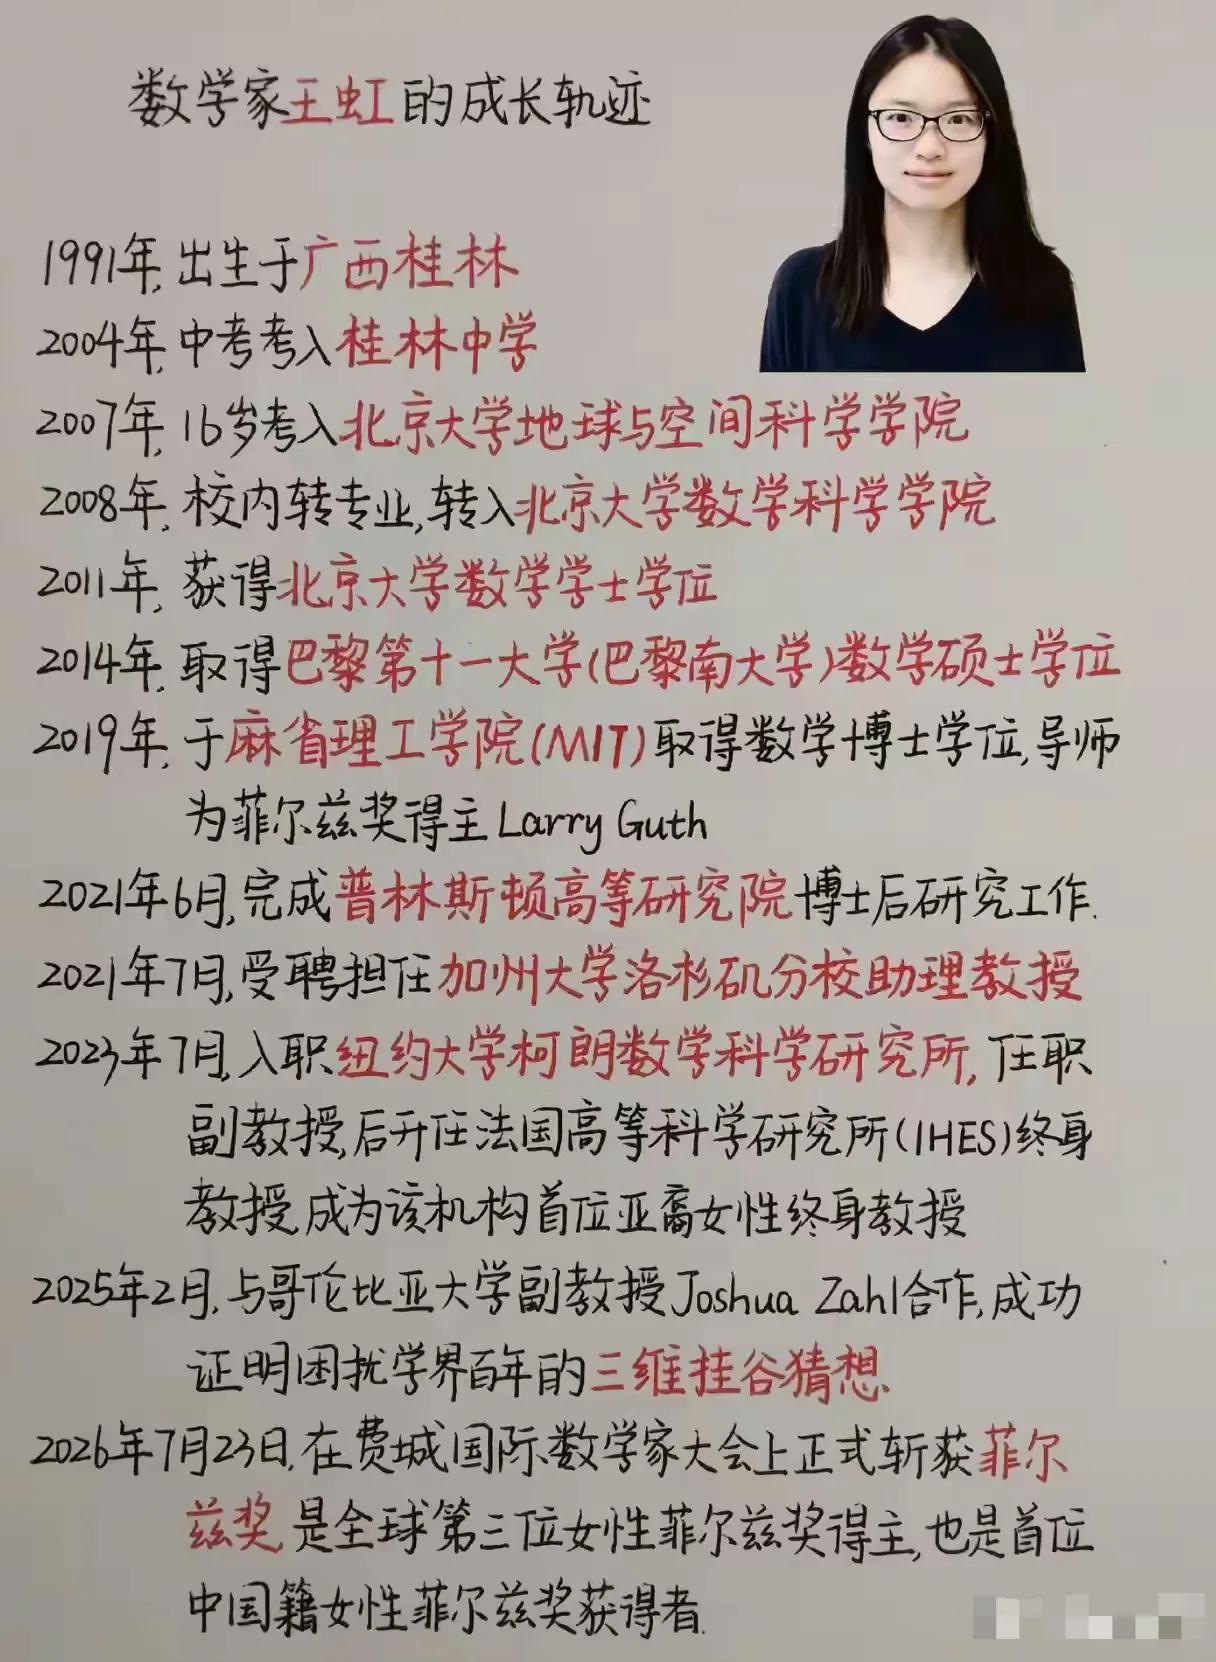 数学家王虹的成长轨迹
1991年,出生于广西桂林
2004年,中考考入桂林中学
2007年,16岁考入北京大学地球与空间科学学院
2008年,校内转专业,转入北京大学数学科学学院
2011年,获得北京大学数学学士学位
2014年,取得巴黎第十一大学(巴黎南大学)数学硕士学位
2019年,于麻省理工学院(MIT)取得数学博士学位,导师
为菲尔兹奖得主Larry Guth
2021年6月,完成普林斯顿高等研究院博士后研究工作.
2021年7月,受聘担任加州大学洛杉矶分校助理教授
2023年7月,入职纽约大学柯朗数学科学研究所,任职
副教授,后升任法国高等科学研究所(IHES)终身
教授,成为该机构首位亚裔女性终身教授
2025年2月,与哥伦比亚大学副教授Joshua Zahl合作,成功
证明困扰学界百年的三维挂谷猜想.
2026年7月23日,在费城国际数学家大会上正式斩获菲尔
兹奖,是全球第三位女性菲尔兹奖得主,也是首位
中国籍女性菲尔兹奖获得者.